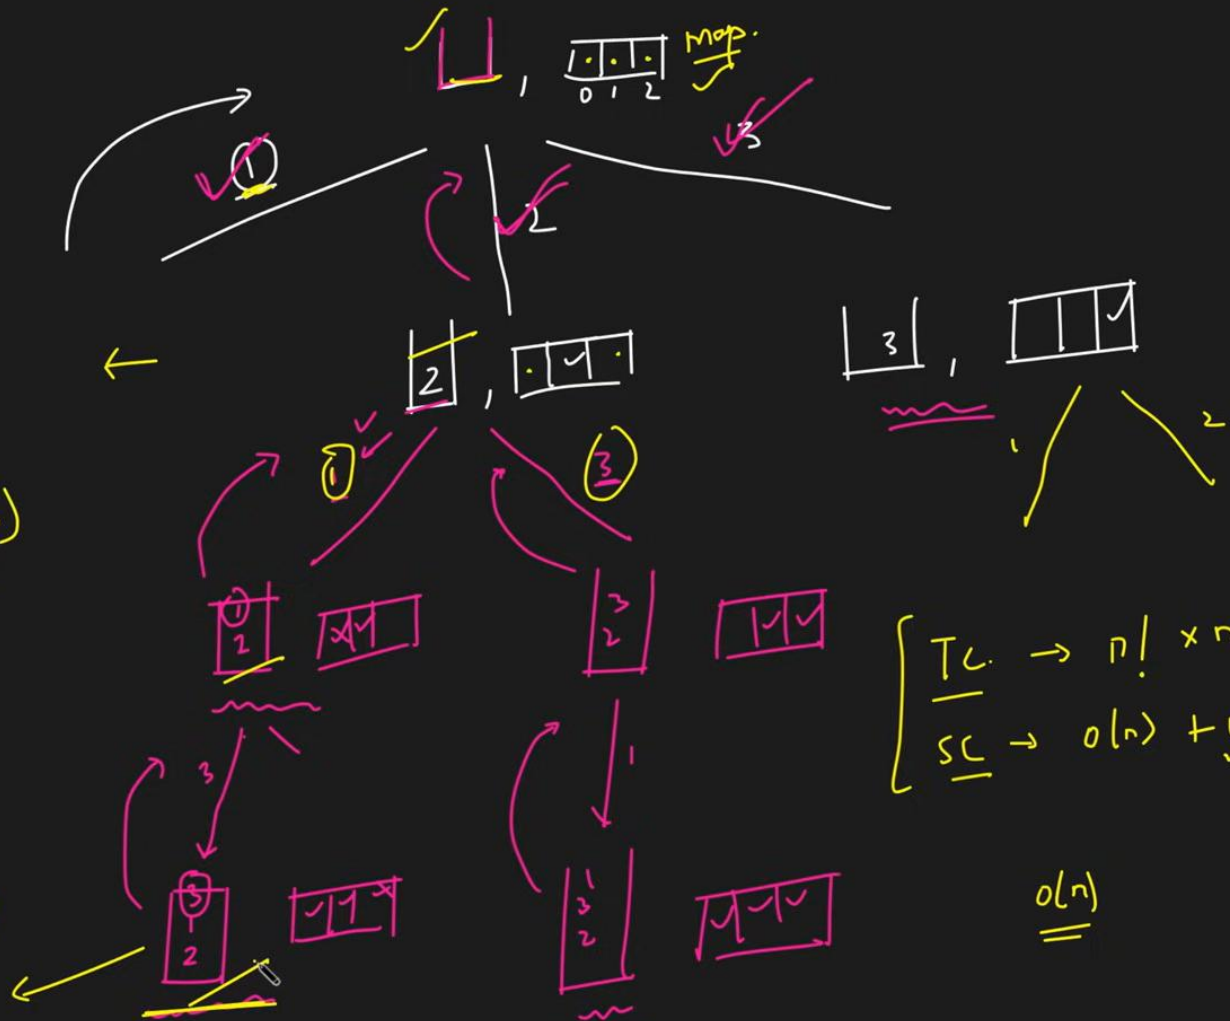 map.
0 1 2
1
2
3
2
3
1
3
1
2
1
2
3
2
TC. → n! × n
SC → O(n) +
3
1
3
1
2
1
3
2
O(n)